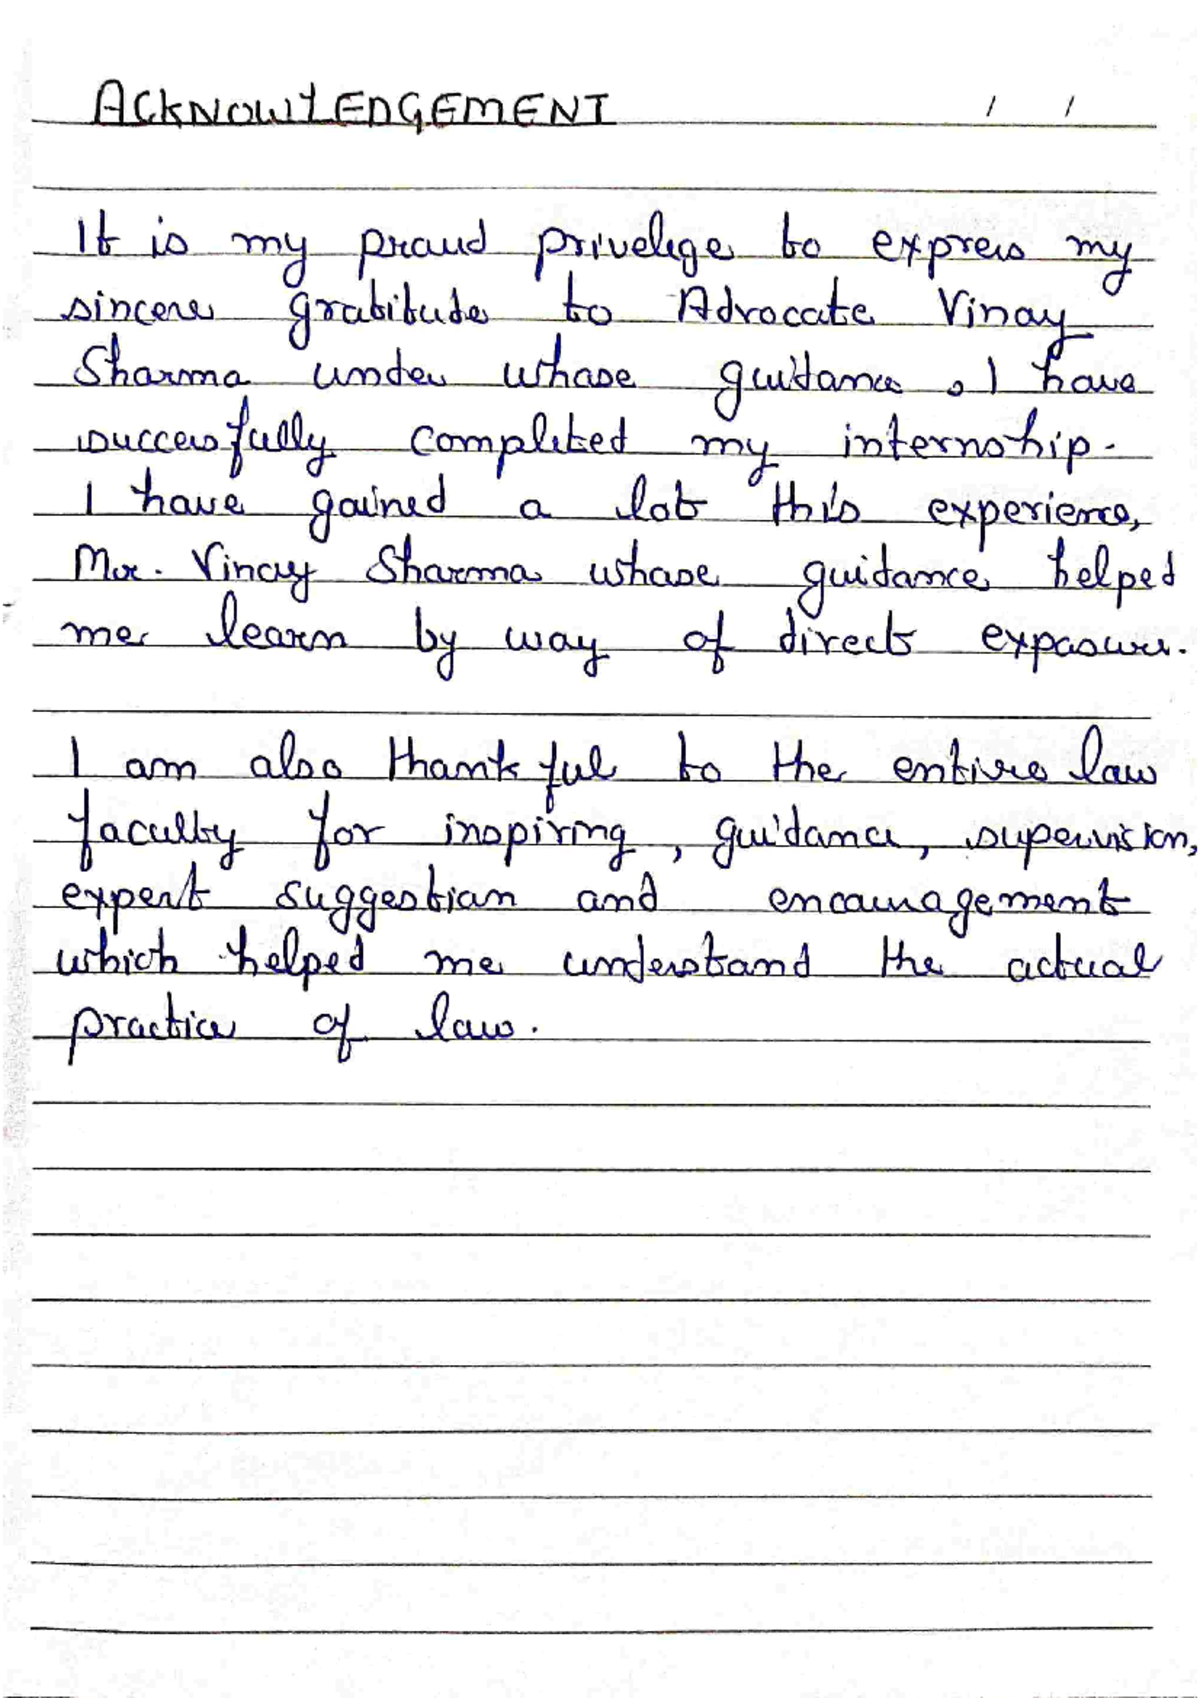 ACKNOWLEDGEMENT / /
It is my proud privelege to express my
sincere gratitude to Advocate Vinay
Sharma under whose guidance, I have
successfully completed my internship.
I have gained a lot this experience,
Mr. Vinay Sharma whose guidance helped
me learn by way of direct exposure.
I am also thankful to the entire law
faculty for inspiring, guidance, supervision,
expert suggestion and encouragement
which helped me understand the actual
practice of law.